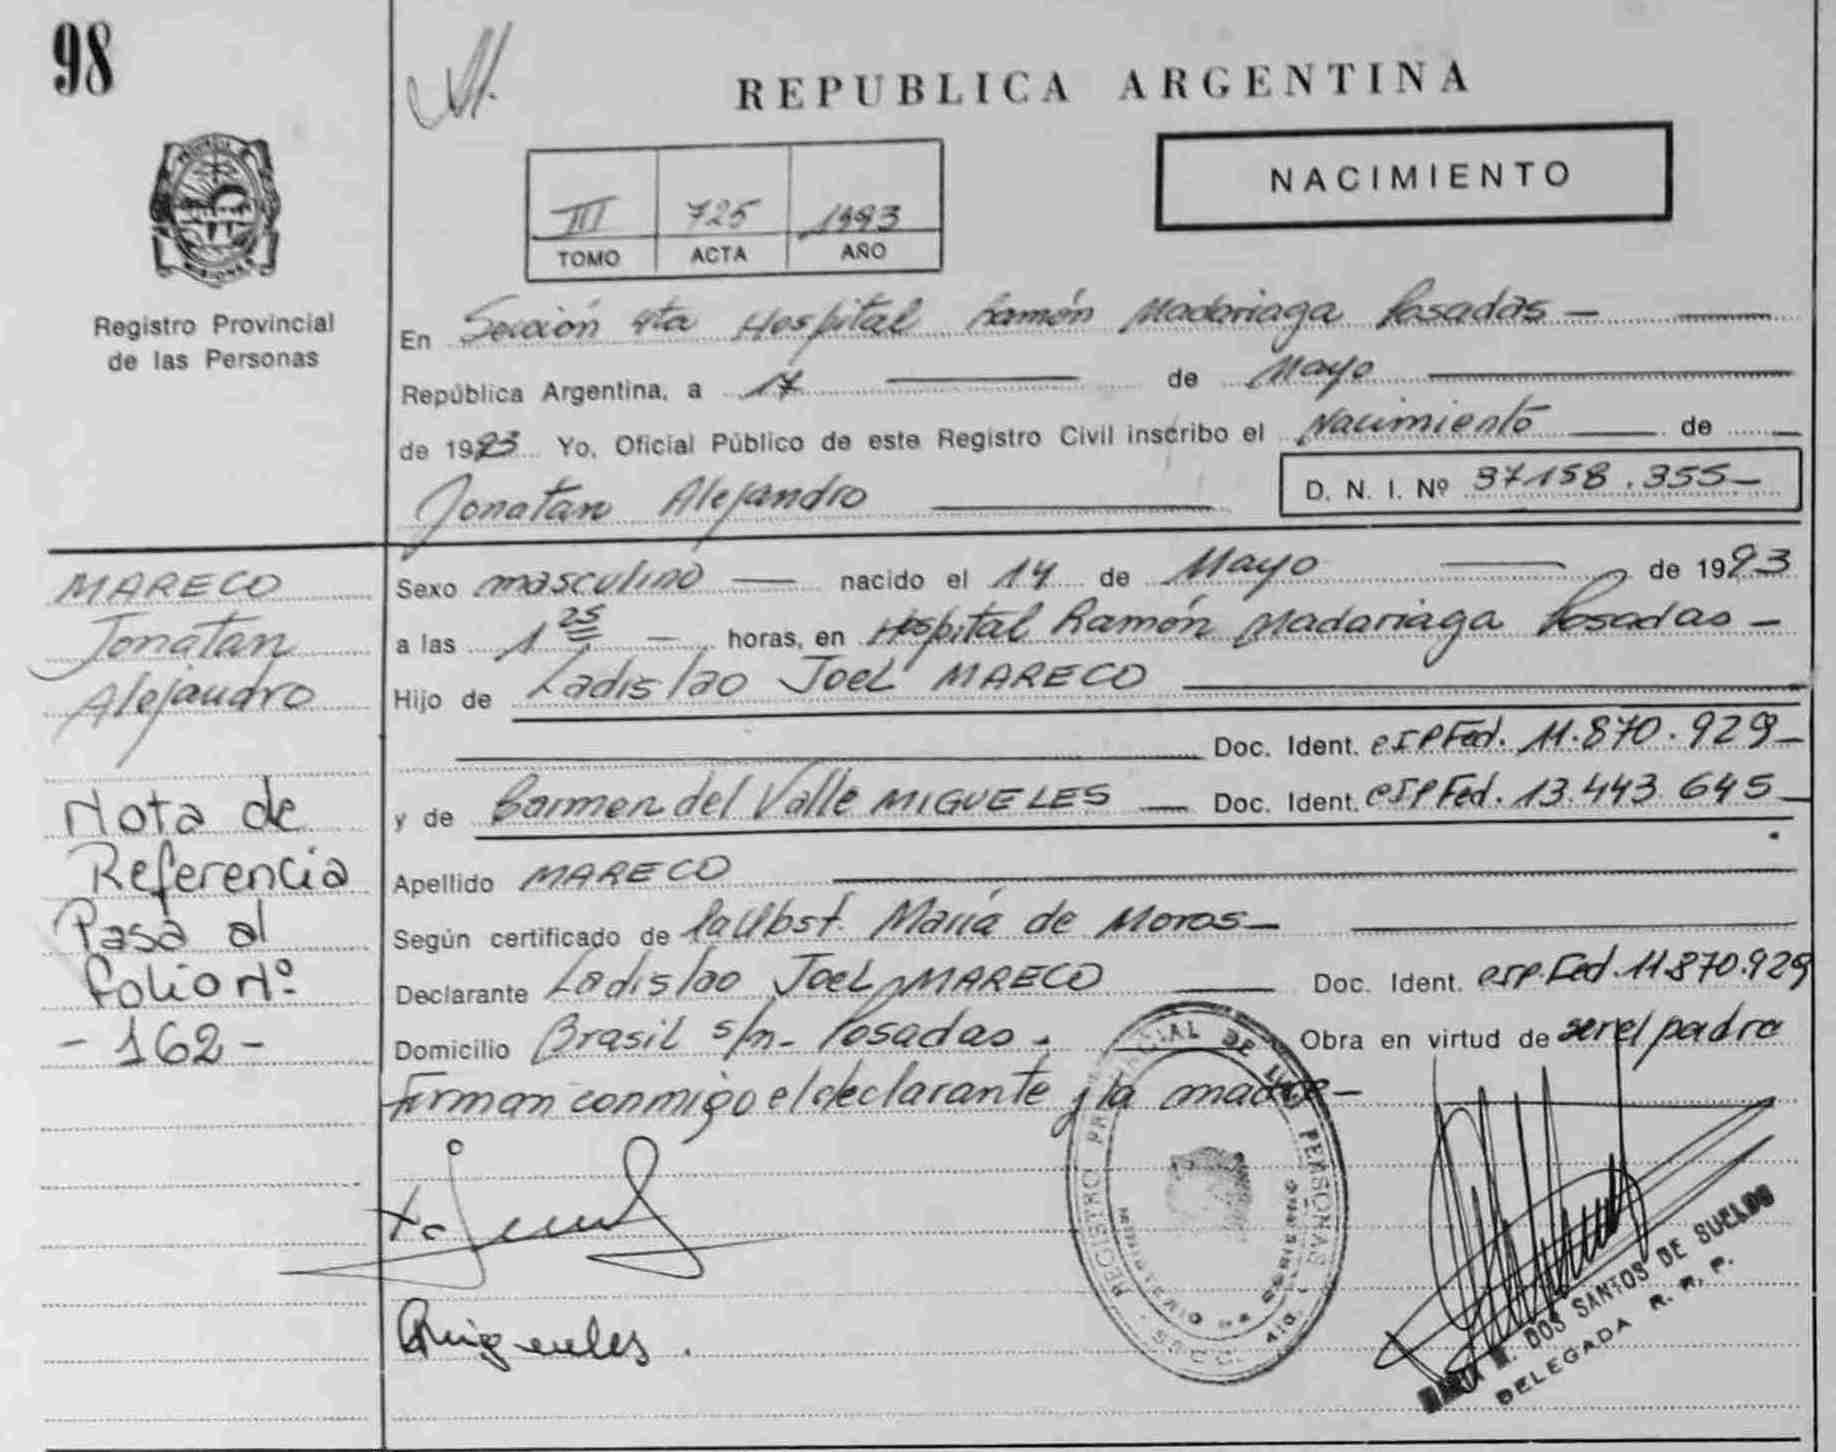 98
M.
REPUBLICA ARGENTINA
NACIMIENTO
III 725 1993
TOMO ACTA AÑO
Registro Provincial
de las Personas
En Sección 4ta Hospital Ramón Madariaga Posadas —
República Argentina, a 17 de Mayo
de 1993 Yo, Oficial Público de este Registro Civil inscribo el Nacimiento de
Jonatan Alejandro D. N. I. Nº 37158.355—
MARECO
Jonatan
Alejandro
Nota de
Referencia
Pasa al
folio Nº
- 162 -
Sexo masculino — nacido el 14 de Mayo de 1993
a las 1 25 — horas, en Hospital Ramón Madariaga Posadas —
Hijo de Ladislao Joel MARECO
Doc. Ident. 11.870.929—
y de del Valle MIGUELES — Doc. Ident. 13.443.645—
Apellido MARECO
Según certificado de la Obst. María de Moros—
Declarante Ladislao Joel MARECO Doc. Ident. 11.870.929
Domicilio Brasil s/n- Posadas - Obra en virtud de ser el padre
Firman conmigo el declarante y la madre—
REGISTRO PROVINCIAL DE LAS PERSONAS
DOS SANTOS DE SUELDO
DELEGADA R. P. P.